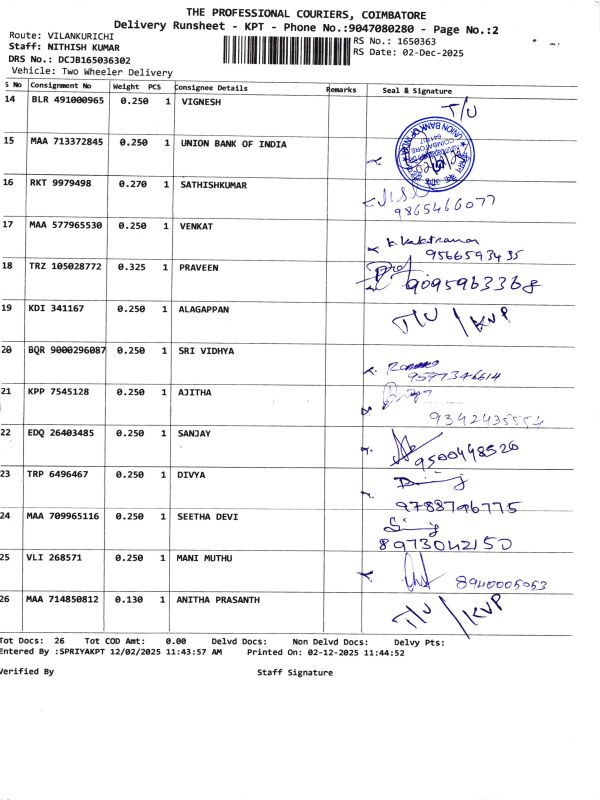 THE PROFESSIONAL COURIERS, COIMBATORE
Delivery Runsheet - KPT - Phone No.:9047080280 - Page No.:2
Route: VILANKURICHI
Staff: NITHISH KUMAR
RS No.: 1650363
DRS No.: DCJB165036302
RS Date: 02-Dec-2025
Vehicle: Two Wheeler Delivery
S No Consignment No Weight PCS Consignee Details Remarks Seal & Signature
14 BLR 491000965 0.250 1 VIGNESH T/U
15 MAA 713372845 0.250 1 UNION BANK OF INDIA
UNION BANK OF INDIA
COIMBATORE
16 RKT 9979498 0.270 1 SATHISHKUMAR
9865466077
17 MAA 577965530 0.250 1 VENKAT
9566593435
18 TRZ 105028772 0.325 1 PRAVEEN
9095963368
19 KDI 341167 0.250 1 ALAGAPPAN T/U / KVP
20 BQR 9000296087 0.250 1 SRI VIDHYA
9597346614
21 KPP 7545128 0.250 1 AJITHA
9342435554
22 EDQ 26403485 0.250 1 SANJAY
9500448526
23 TRP 6496467 0.250 1 DIVYA
9788796775
24 MAA 709965116 0.250 1 SEETHA DEVI
8973042150
25 VLI 268571 0.250 1 MANI MUTHU
8940005053
26 MAA 714850812 0.130 1 ANITHA PRASANTH T/U / KVP
Tot Docs: 26 Tot COD Amt: 0.00 Delvd Docs: Non Delvd Docs: Delvy Pts:
Entered By :SPRIYAKPT 12/02/2025 11:43:57 AM Printed On: 02-12-2025 11:44:52
Verified By Staff Signature